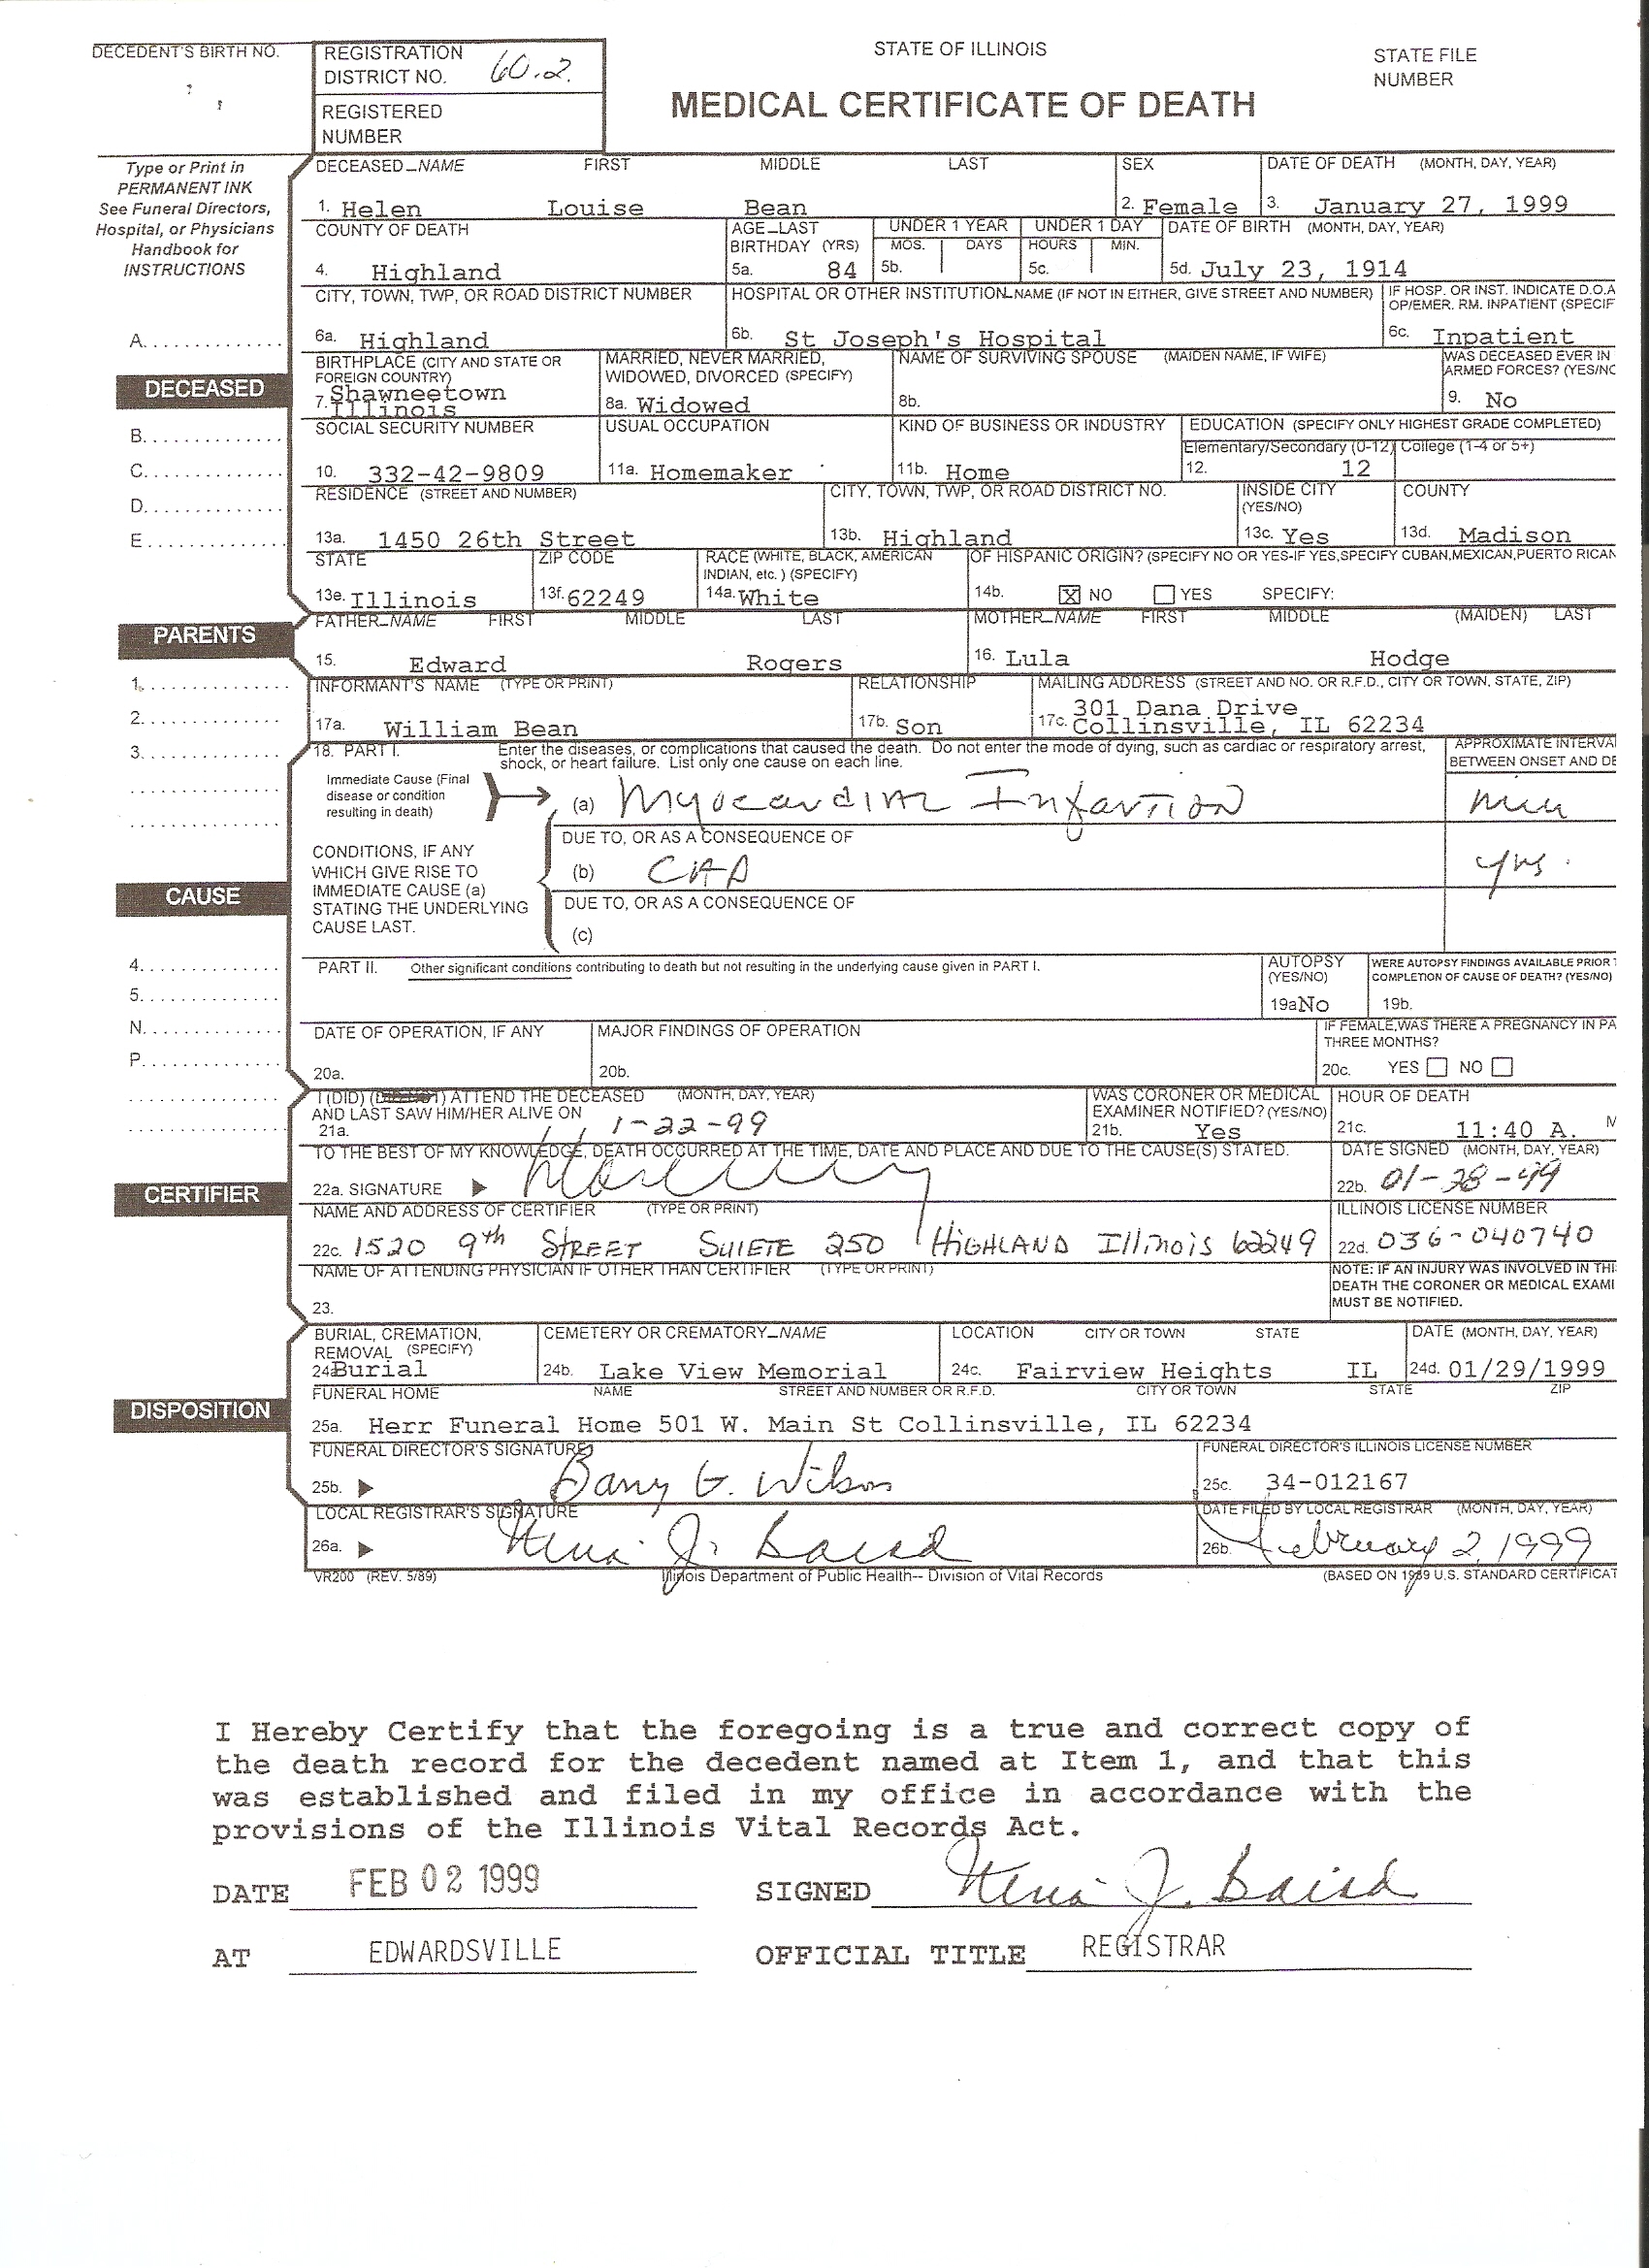 DECEDENT'S BIRTH NO.
REGISTRATION DISTRICT NO. 60.2
REGISTERED NUMBER
STATE OF ILLINOIS
STATE FILE NUMBER
MEDICAL CERTIFICATE OF DEATH
Type or Print in
PERMANENT INK
See Funeral Directors,
Hospital, or Physicians
Handbook for
INSTRUCTIONS
DECEASED_NAME FIRST MIDDLE LAST SEX DATE OF DEATH (MONTH, DAY, YEAR)
1. Helen Louise Bean 2. Female 3. January 27, 1999
COUNTY OF DEATH AGE_LAST BIRTHDAY (YRS) UNDER 1 YEAR MOS. DAYS UNDER 1 DAY HOURS MIN. DATE OF BIRTH (MONTH, DAY, YEAR)
4. Highland 5a. 84 5b. 5c. 5d. July 23, 1914
CITY, TOWN, TWP, OR ROAD DISTRICT NUMBER HOSPITAL OR OTHER INSTITUTION_NAME (IF NOT IN EITHER, GIVE STREET AND NUMBER) IF HOSP. OR INST. INDICATE D.O.A OP/EMER. RM. INPATIENT (SPECIF
A. 6a. Highland 6b. St Joseph's Hospital 6c. Inpatient
DECEASED
BIRTHPLACE (CITY AND STATE OR FOREIGN COUNTRY) MARRIED, NEVER MARRIED, WIDOWED, DIVORCED (SPECIFY) NAME OF SURVIVING SPOUSE (MAIDEN NAME, IF WIFE) WAS DECEASED EVER IN ARMED FORCES? (YES/NO
7. Shawneetown Illinois 8a. Widowed 8b. 9. No
B. SOCIAL SECURITY NUMBER USUAL OCCUPATION KIND OF BUSINESS OR INDUSTRY EDUCATION (SPECIFY ONLY HIGHEST GRADE COMPLETED)
Elementary/Secondary (0-12) College (1-4 or 5+)
C. 10. 332-42-9809 11a. Homemaker 11b. Home 12. 12
D. RESIDENCE (STREET AND NUMBER) CITY, TOWN, TWP, OR ROAD DISTRICT NO. INSIDE CITY (YES/NO) COUNTY
E. 13a. 1450 26th Street 13b. Highland 13c. Yes 13d. Madison
STATE ZIP CODE RACE (WHITE, BLACK, AMERICAN INDIAN, etc.) (SPECIFY) OF HISPANIC ORIGIN? (SPECIFY NO OR YES-IF YES,SPECIFY CUBAN,MEXICAN,PUERTO RICAN
13e. Illinois 13f. 62249 14a. White 14b. X NO YES SPECIFY:
PARENTS
FATHER_NAME FIRST MIDDLE LAST MOTHER_NAME FIRST MIDDLE (MAIDEN) LAST
15. Edward Rogers 16. Lula Hodge
1. INFORMANT'S NAME (TYPE OR PRINT) RELATIONSHIP MAILING ADDRESS (STREET AND NO. OR R.F.D., CITY OR TOWN, STATE, ZIP)
2. 17a. William Bean 17b. Son 17c. 301 Dana Drive Collinsville, IL 62234
3. 18. PART I. Enter the diseases, or complications that caused the death. Do not enter the mode of dying, such as cardiac or respiratory arrest,
shock, or heart failure. List only one cause on each line. APPROXIMATE INTERVA BETWEEN ONSET AND DE
Immediate Cause (Final disease or condition resulting in death) (a) Myocardial Infartion min
DUE TO, OR AS A CONSEQUENCE OF
CONDITIONS, IF ANY WHICH GIVE RISE TO IMMEDIATE CAUSE (a) STATING THE UNDERLYING CAUSE LAST.
(b) CAD yrs.
CAUSE
DUE TO, OR AS A CONSEQUENCE OF
(c)
4. PART II. Other significant conditions contributing to death but not resulting in the underlying cause given in PART I. AUTOPSY (YES/NO) WERE AUTOPSY FINDINGS AVAILABLE PRIOR T COMPLETION OF CAUSE OF DEATH? (YES/NO)
5. 19a No 19b.
N. DATE OF OPERATION, IF ANY MAJOR FINDINGS OF OPERATION IF FEMALE,WAS THERE A PREGNANCY IN PA THREE MONTHS?
P. 20a. 20b. 20c. YES NO
I (DID) ATTEND THE DECEASED (MONTH, DAY, YEAR) WAS CORONER OR MEDICAL HOUR OF DEATH
AND LAST SAW HIM/HER ALIVE ON EXAMINER NOTIFIED? (YES/NO)
21a. 1-22-99 21b. Yes 21c. 11:40 A. M
TO THE BEST OF MY KNOWLEDGE, DEATH OCCURRED AT THE TIME, DATE AND PLACE AND DUE TO THE CAUSE(S) STATED. DATE SIGNED (MONTH, DAY, YEAR)
CERTIFIER
22a. SIGNATURE 22b. 01-28-99
NAME AND ADDRESS OF CERTIFIER (TYPE OR PRINT) ILLINOIS LICENSE NUMBER
22c. 1520 9th STREET SUIETE 250 HIGHLAND Illinois 62249 22d. 036-040740
NAME OF ATTENDING PHYSICIAN IF OTHER THAN CERTIFIER (TYPE OR PRINT) NOTE: IF AN INJURY WAS INVOLVED IN THI DEATH THE CORONER OR MEDICAL EXAMI MUST BE NOTIFIED.
23.
BURIAL, CREMATION, REMOVAL (SPECIFY) CEMETERY OR CREMATORY_NAME LOCATION CITY OR TOWN STATE DATE (MONTH, DAY, YEAR)
24 Burial 24b. Lake View Memorial 24c. Fairview Heights IL 24d. 01/29/1999
DISPOSITION
FUNERAL HOME NAME STREET AND NUMBER OR R.F.D. CITY OR TOWN STATE ZIP
25a. Herr Funeral Home 501 W. Main St Collinsville, IL 62234
FUNERAL DIRECTOR'S SIGNATURE FUNERAL DIRECTOR'S ILLINOIS LICENSE NUMBER
25b. Barry G. Wilson 25c. 34-012167
LOCAL REGISTRAR'S SIGNATURE DATE FILED BY LOCAL REGISTRAR (MONTH, DAY, YEAR)
26a. J. Baird 26b. February 2, 1999
VR200 (REV. 5/89) Illinois Department of Public Health-- Division of Vital Records (BASED ON 1989 U.S. STANDARD CERTIFICAT
I Hereby Certify that the foregoing is a true and correct copy of
the death record for the decedent named at Item 1, and that this
was established and filed in my office in accordance with the
provisions of the Illinois Vital Records Act.
DATE FEB 02 1999 SIGNED J. Baird
AT EDWARDSVILLE OFFICIAL TITLE REGISTRAR